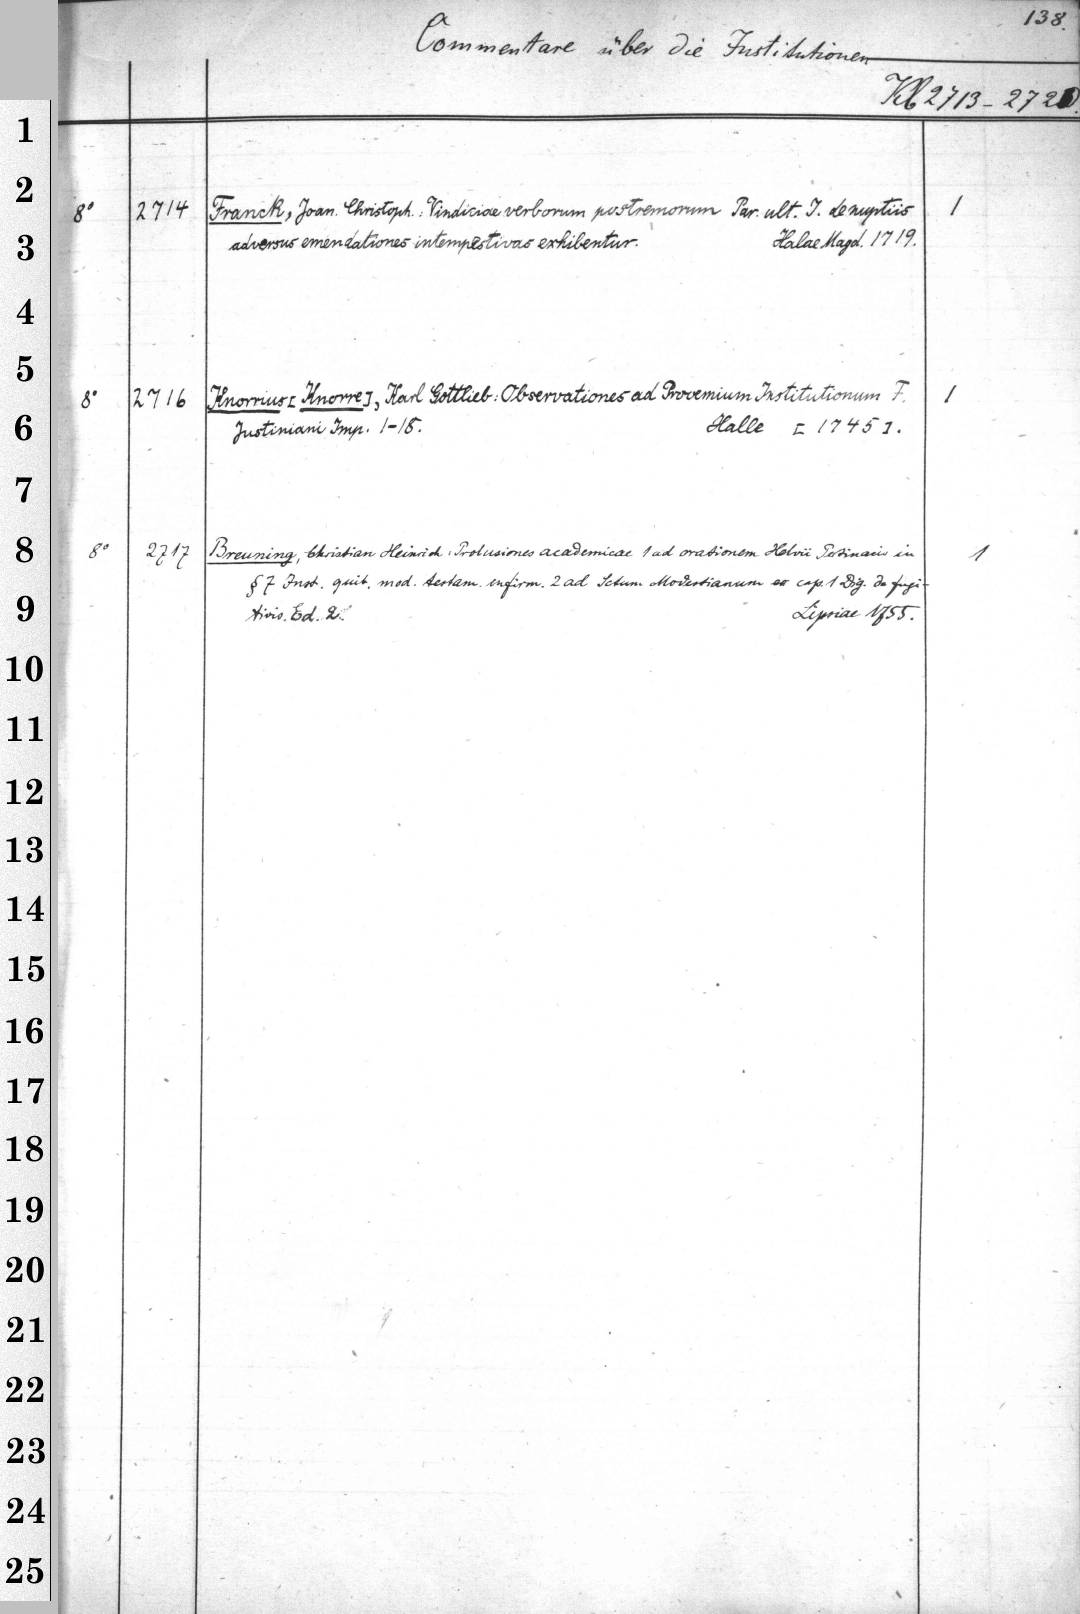 138.
Commentare über die Institutionen
Kl 2713-272
1
2
8° 2714 Franck, Joan. Christoph.: Vindiciae verborum postremorum Par. ult. I. de nuptiis 1
3
adversus emendationes intempestivas exhibentur. Halae Magd. 1719.
4
5
8° 2716 Knorrius [Knorre], Karl Gottlieb: Observationes ad Provemium Institutionum F. 1
6
Justiniani Imp. 1-18. Halle [1745].
7
8
8° 2717 Breuning, Christian Heinrich: Prolusiones academicae 1 ad orationem Helvii Pertinacis in 1
§ 7 Inst. quib. mod. testam. infirm. 2 ad Ictum Modestianum ex cap. 1 Dig. de fugi-
9
tivis. Ed. 2. Lipsiae 1755.
10
11
12
13
14
15
16
17
18
19
20
21
22
23
24
25